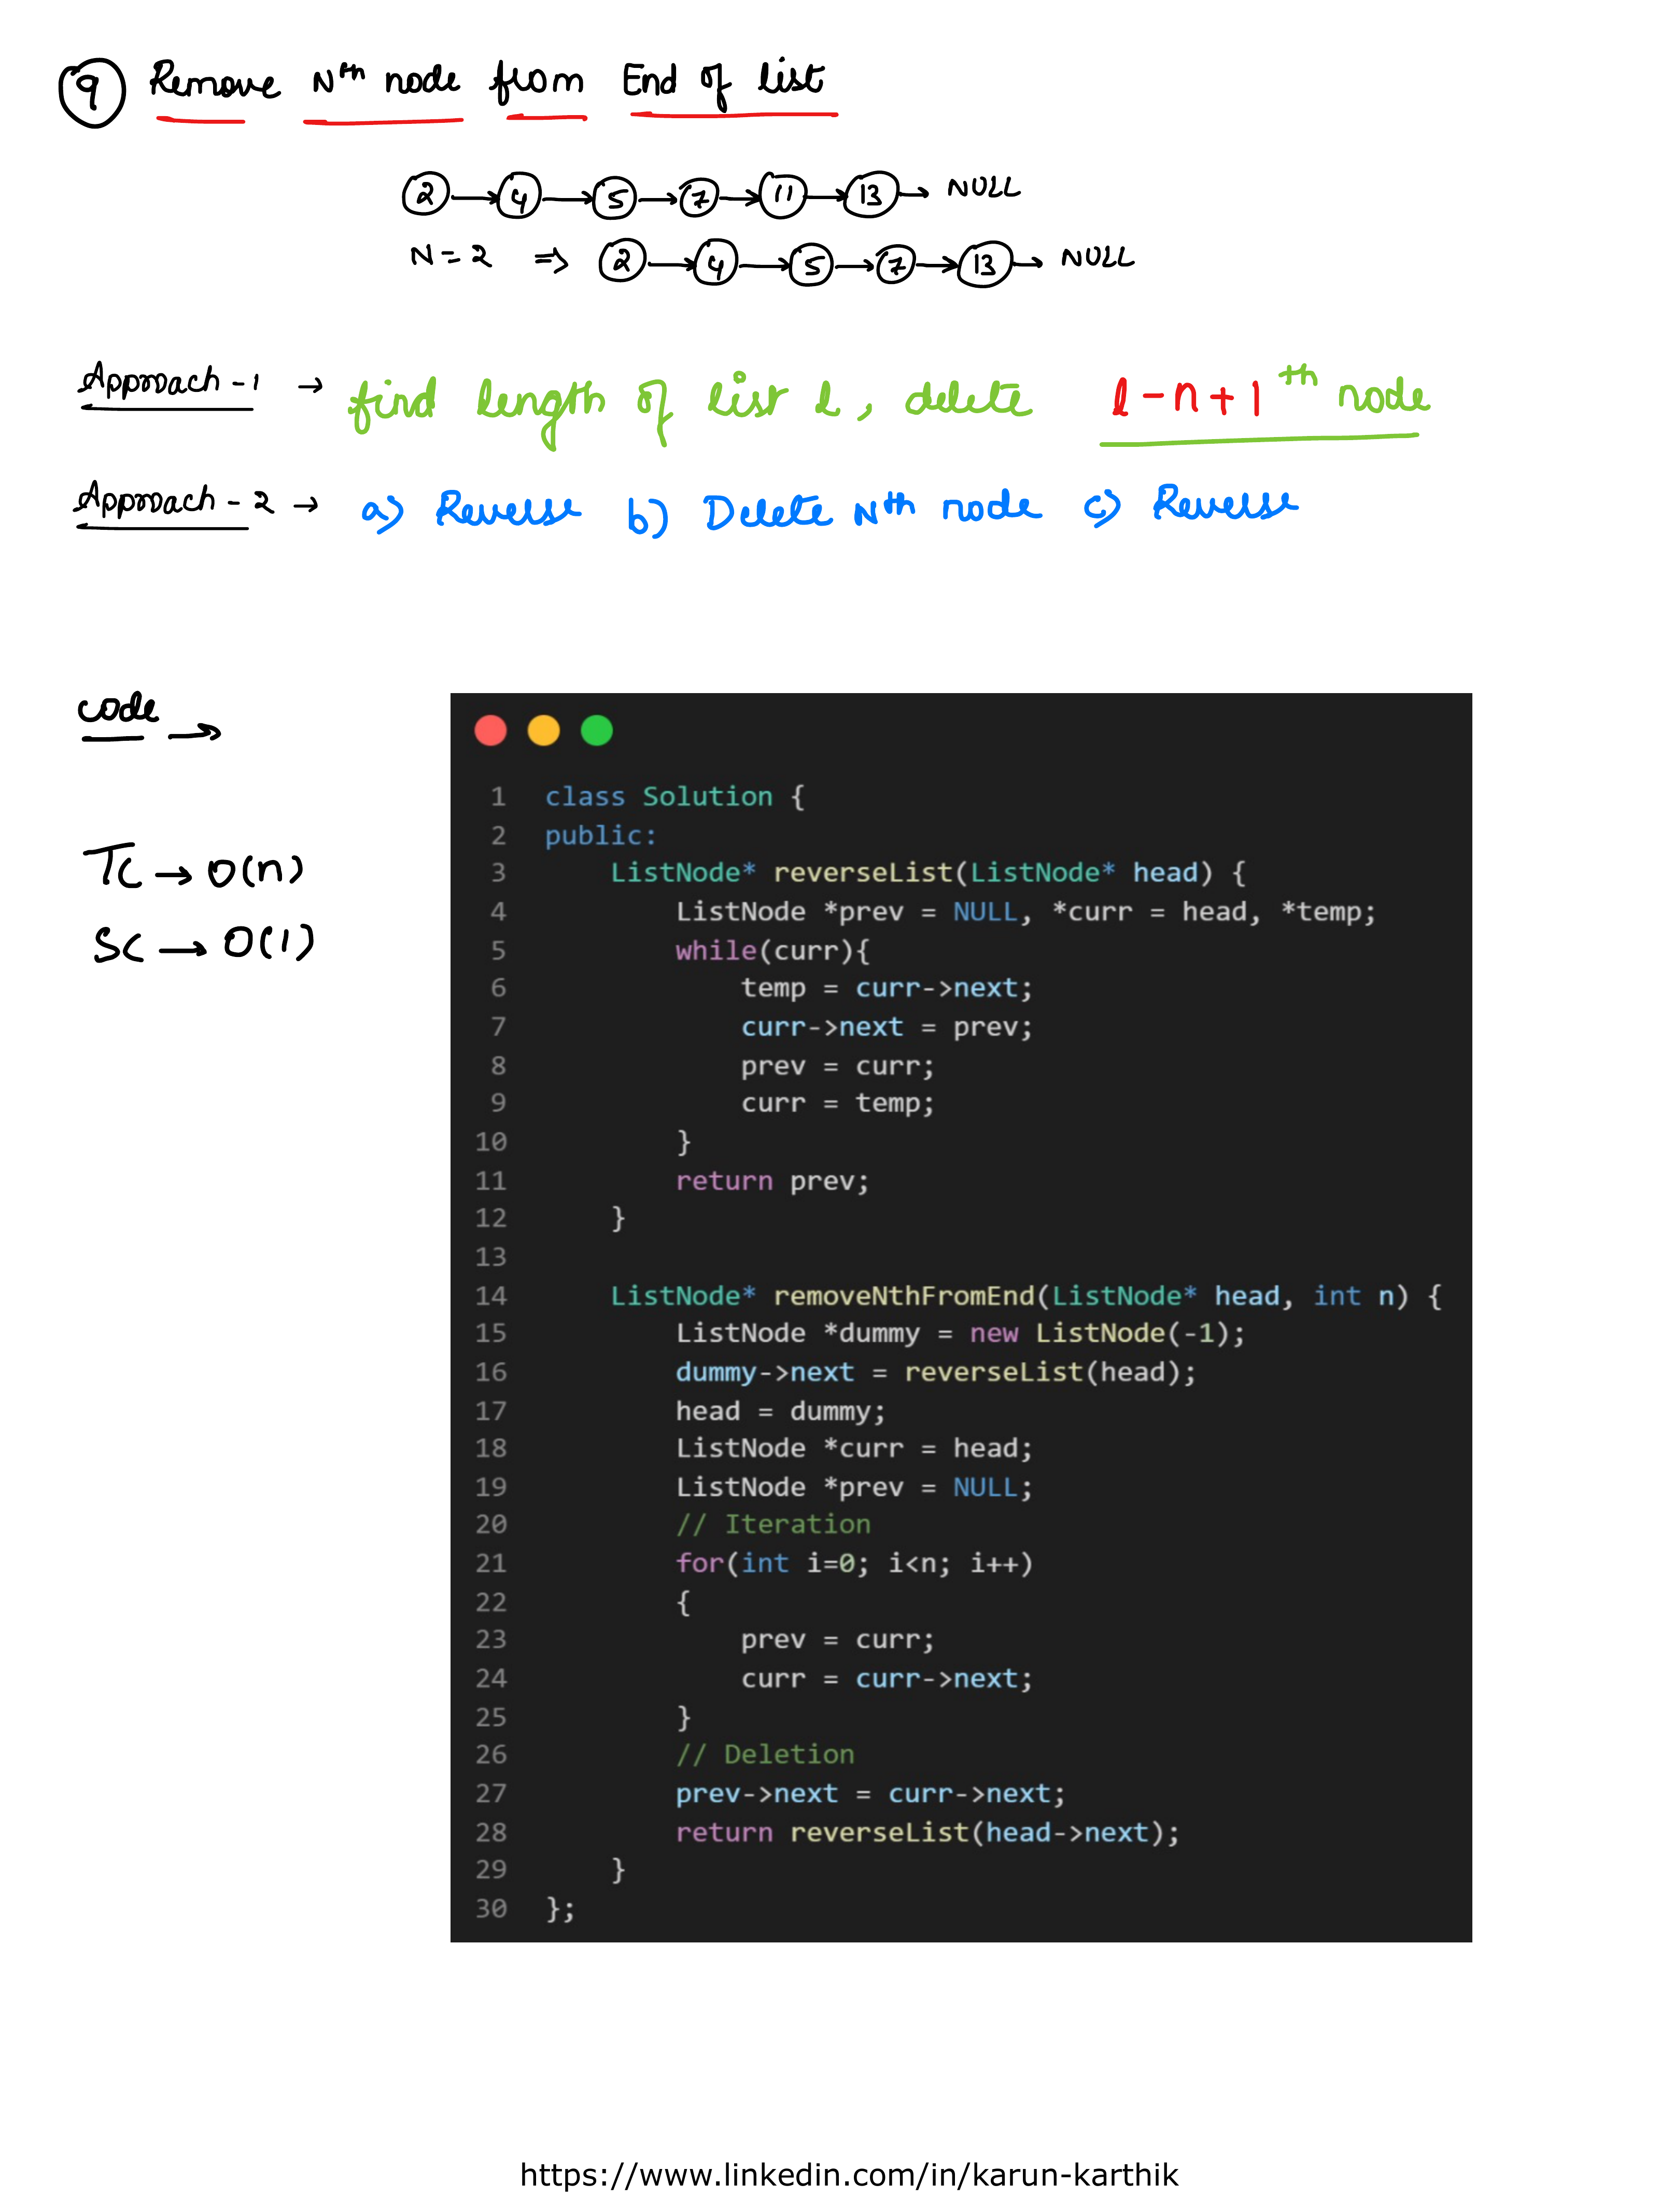 9 Remove Nth node from End of list
2 → 4 → 5 → 7 → 11 → 13 → NULL
N = 2 ⇒ 2 → 4 → 5 → 7 → 13 → NULL
Approach-1 → find length of list l, delete l-n+1th node
Approach-2 → a) Reverse b) Delete Nth node c) Reverse
code →
TC → O(n)
SC → O(1)
1 class Solution {
2 public:
3     ListNode* reverseList(ListNode* head) {
4         ListNode *prev = NULL, *curr = head, *temp;
5         while(curr){
6             temp = curr->next;
7             curr->next = prev;
8             prev = curr;
9             curr = temp;
10         }
11         return prev;
12     }
13
14     ListNode* removeNthFromEnd(ListNode* head, int n) {
15         ListNode *dummy = new ListNode(-1);
16         dummy->next = reverseList(head);
17         head = dummy;
18         ListNode *curr = head;
19         ListNode *prev = NULL;
20         // Iteration
21         for(int i=0; i<n; i++)
22         {
23             prev = curr;
24             curr = curr->next;
25         }
26         // Deletion
27         prev->next = curr->next;
28         return reverseList(head->next);
29     }
30 };
https://www.linkedin.com/in/karun-karthik